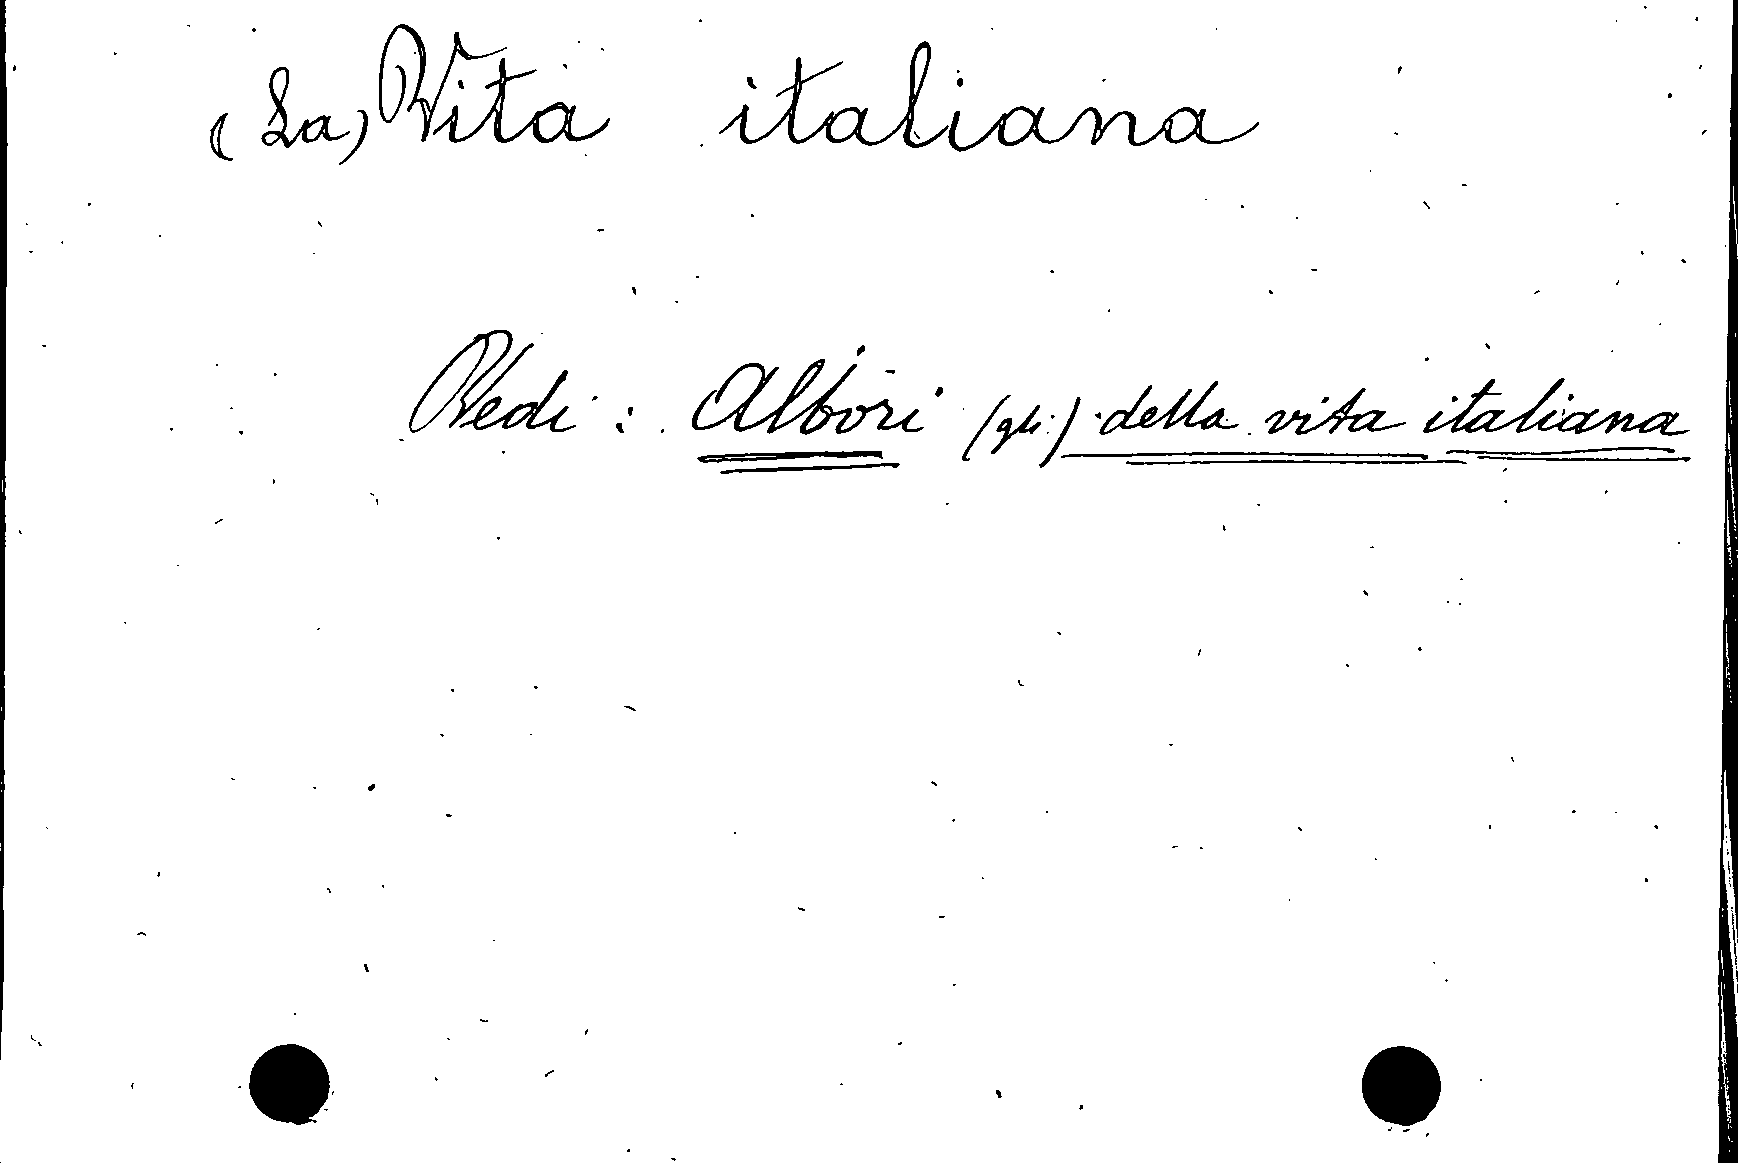 (La) Vita italiana
Vedi : Albori (gli) della vita italiana